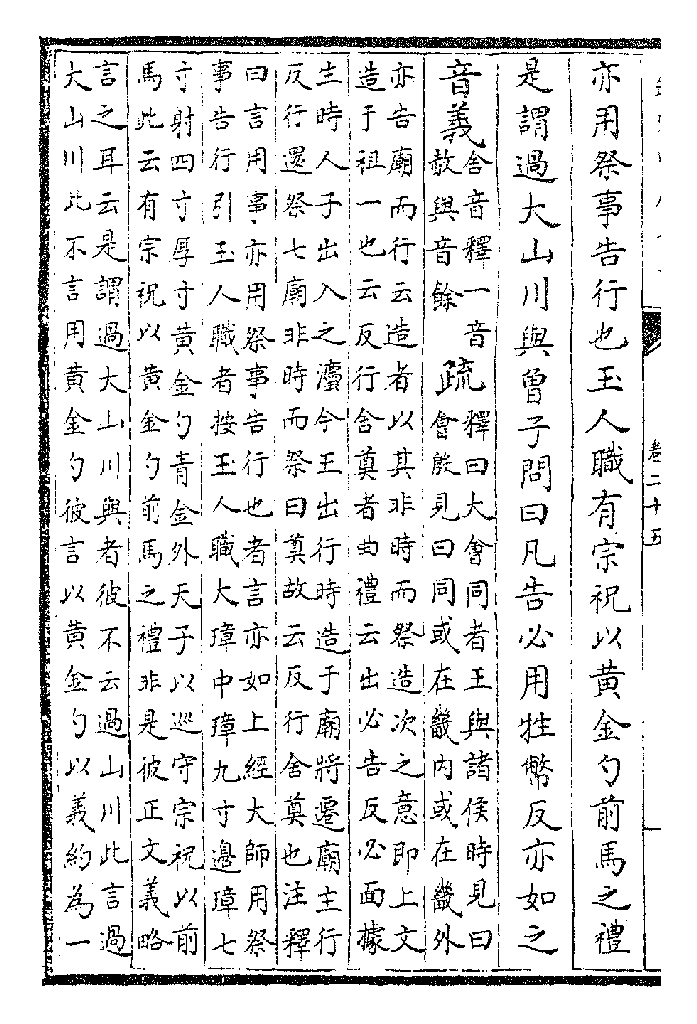 卷二十五
亦用祭事告行也玉人職有宗祝以黄金勺前馬之禮
是謂過大山川與曾子問曰凡告必用牲幣反亦如之
音義
舍音釋一音
赦與音餘
疏
釋曰大會同者王與諸侯時見曰
會殷見曰同或在畿内或在畿外
亦告廟而行云造者以其非時而祭造次之意即上文
造于祖一也云反行舍奠者曲禮云出必告反必面據
生時人子出入之灋今王出行時造于廟將遷廟主行
反行還祭七廟非時而祭曰奠故云反行舍奠也注釋
曰言用事亦用祭事告行也者言亦如上經大師用祭
事告行引玉人職者按玉人職大璋中璋九寸邉璋七
寸射四寸厚寸黄金勺青金外天子以巡守宗祝以前
馬此云有宗祝以黄金勺前馬之禮非是彼正文義略
言之耳云是謂過大山川與者彼不云過山川此言過
大山川此不言用黄金勺彼言以黄金勺以義約為一